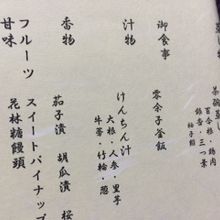 し物
茶碗蒸し
百合根・鶏肉
銀杏・三つ葉
御食事
零余子釜飯
汁物
けんちん汁
大根・人参・里芋
牛蒡・竹輪・葱
香物
茄子漬 胡瓜漬 桜
フルーツ
スイートパイナップ
甘味
花林糖饅頭